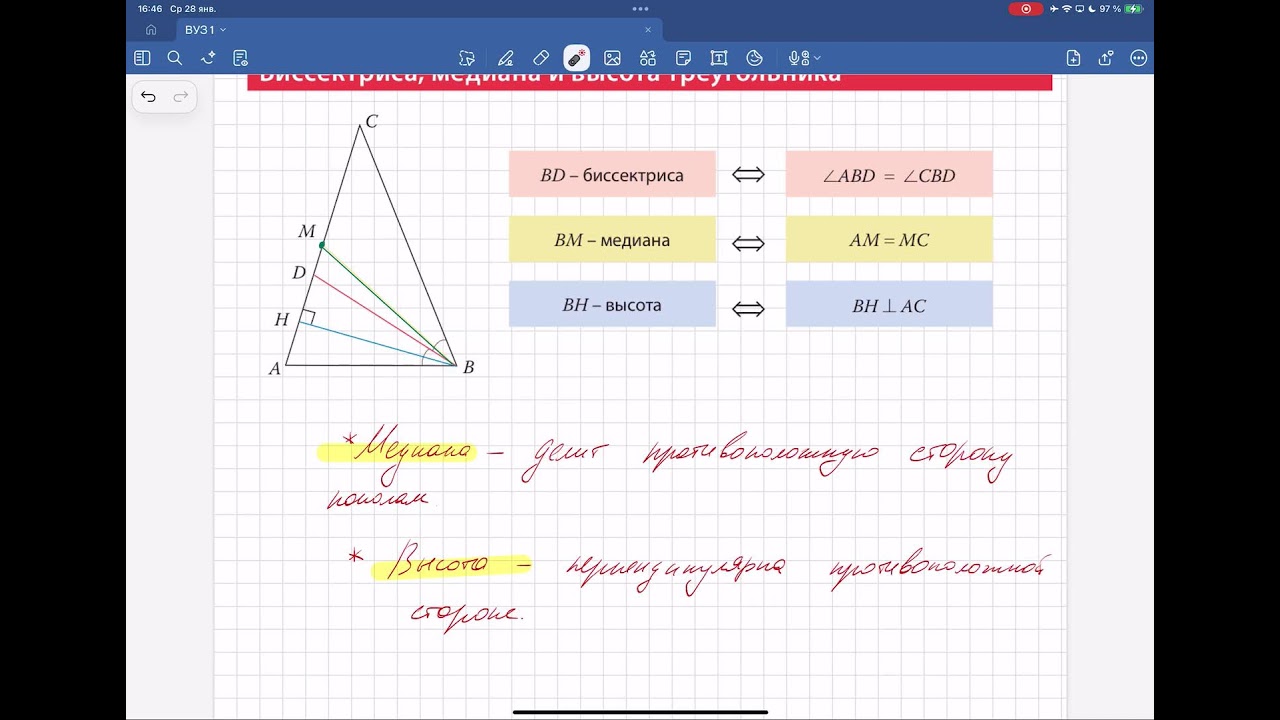 16:46 Ср 28 янв.
97 %
ВУЗ 1
Биссектриса, медиана и высота треугольника
C
M
D
H
A
B
BD – биссектриса ⇔ ∠ABD = ∠CBD
BM – медиана ⇔ AM = MC
BH – высота ⇔ BH ⊥ AC
* Медиана – делит противоположную сторону
пополам
* Высота – перпендикулярна противоположной
стороне.